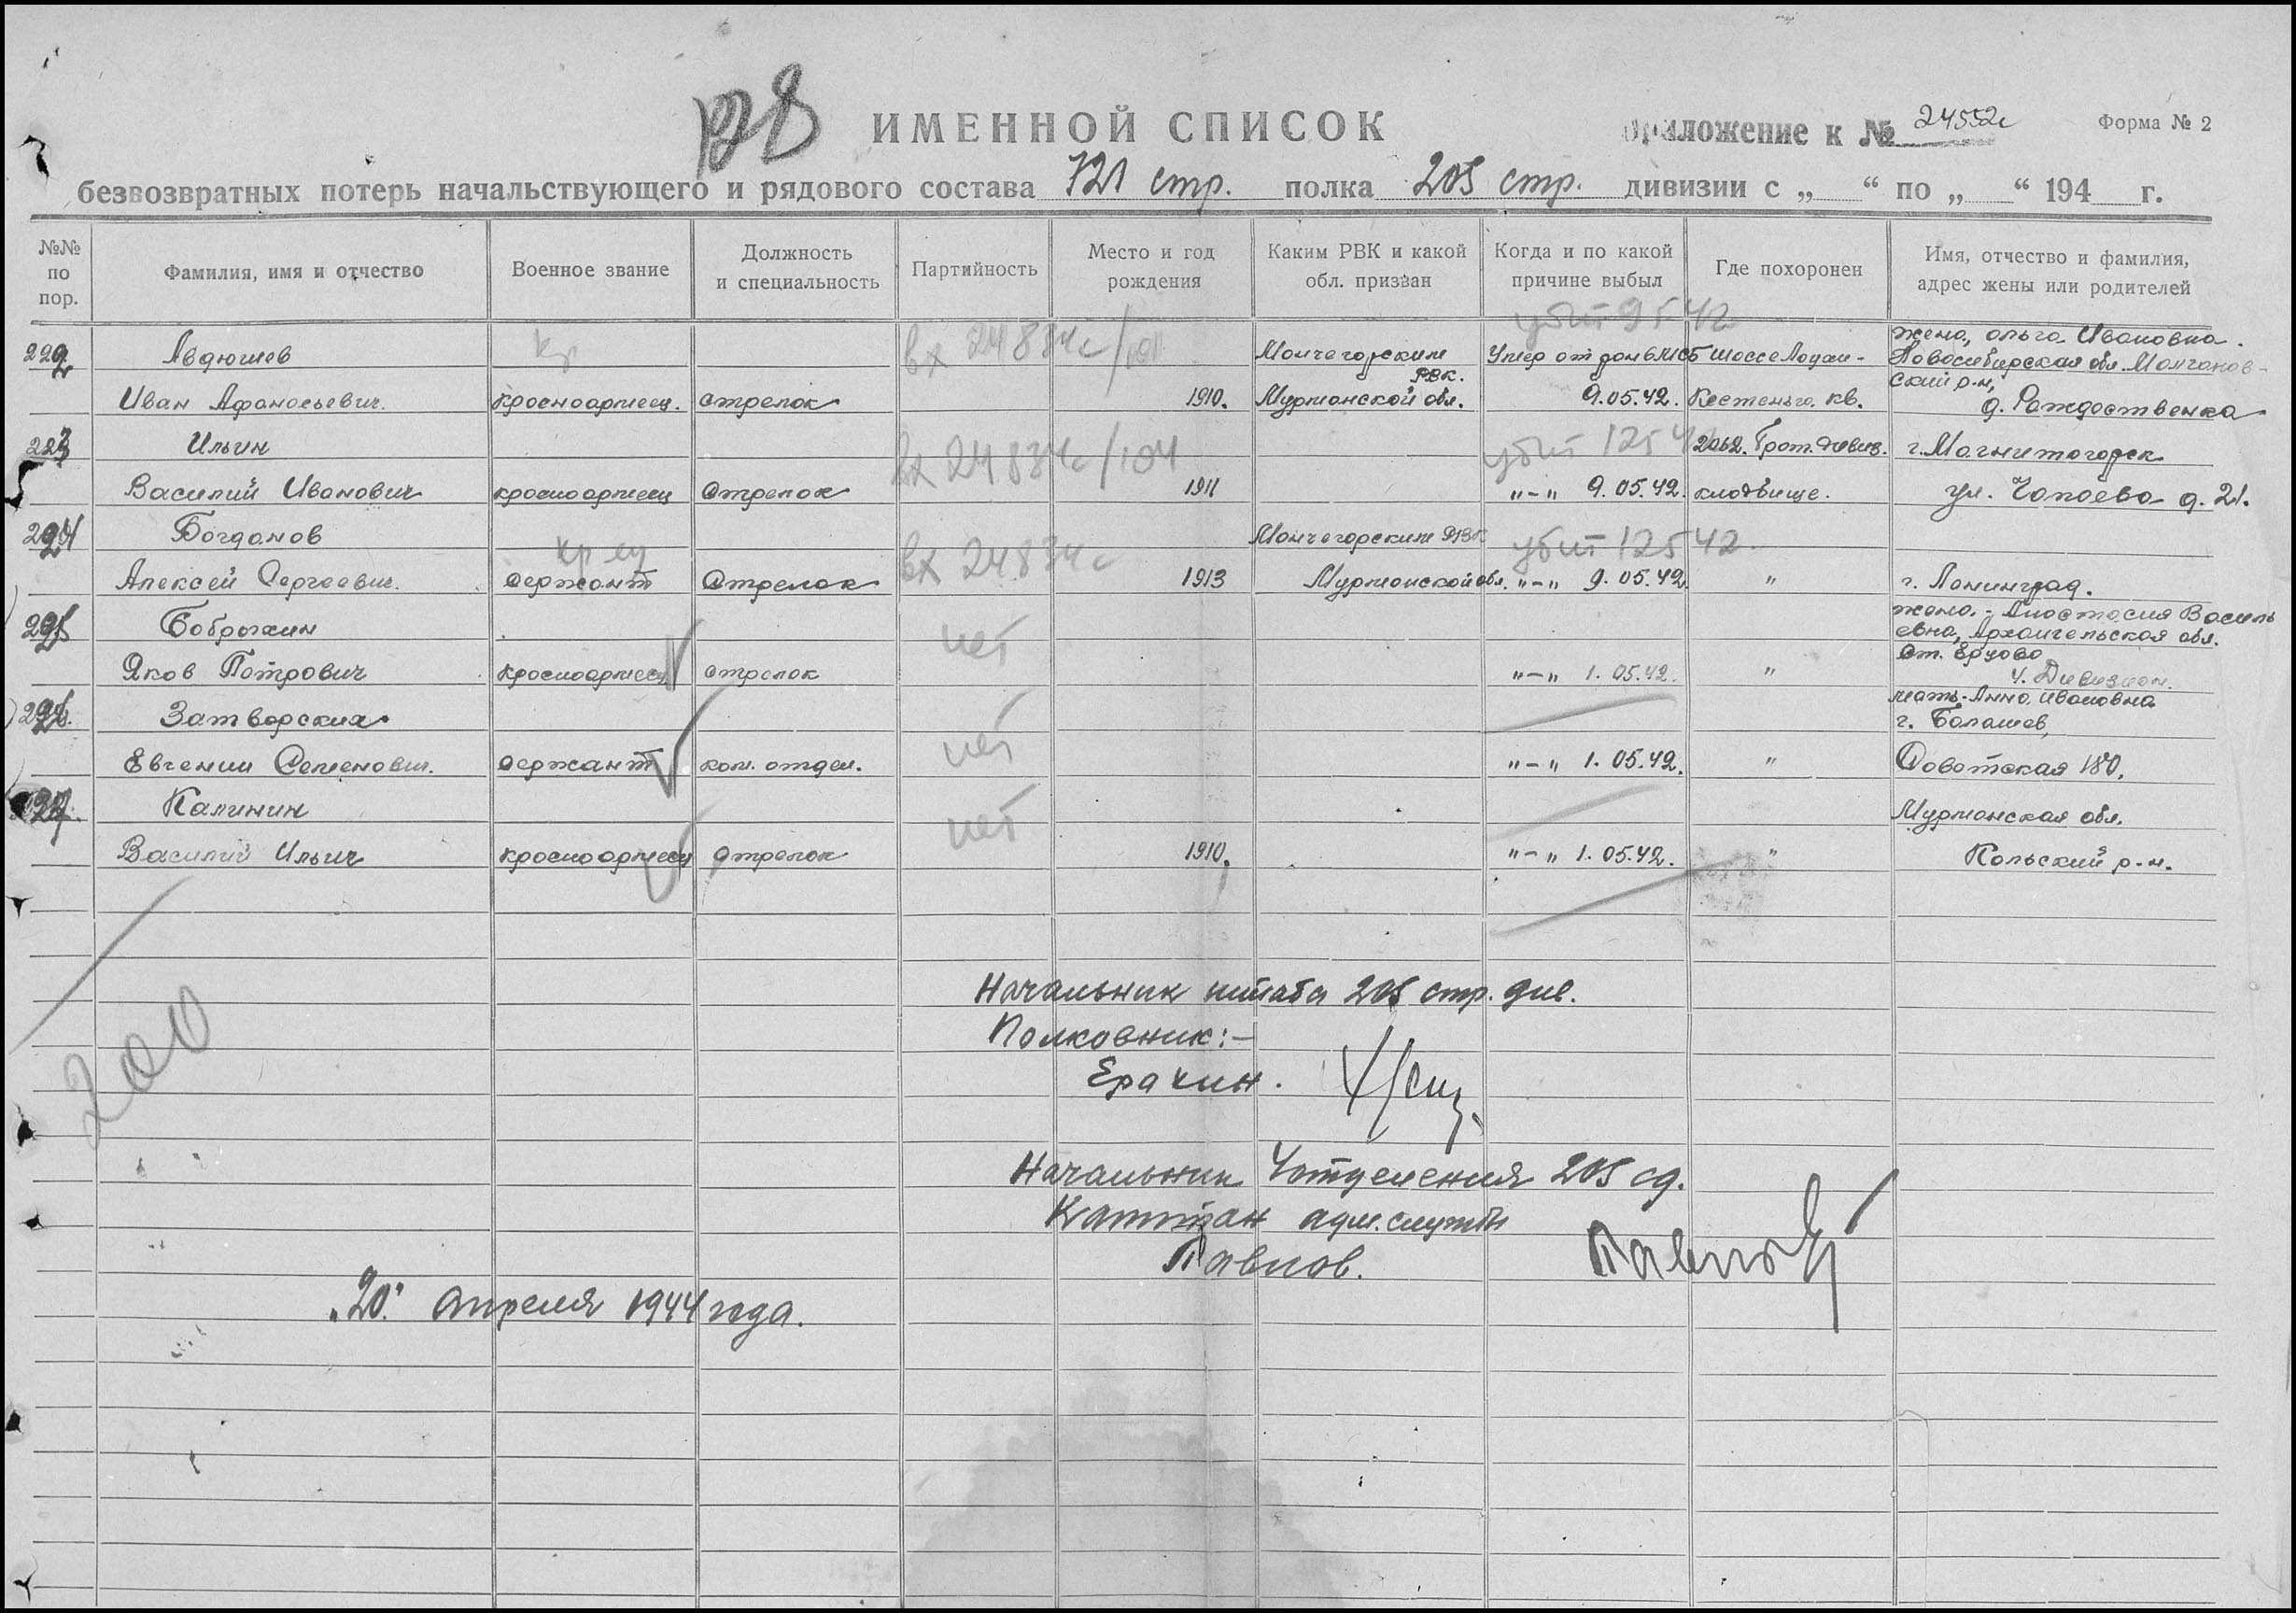 128
ИМЕННОЙ СПИСОК
приложение к № 24552с
Форма № 2
безвозвратных потерь начальствующего и рядового состава 721 стр. полка 205 стр. дивизии с „ “ по „ “ 194 г.
№№ по пор.
Фамилия, имя и отчество
Военное звание
Должность и специальность
Партийность
Место и год рождения
Каким РВК и какой обл. призван
Когда и по какой причине выбыл
Где похоронен
Имя, отчество и фамилия, адрес жены или родителей
222 Авдюшев
Иван Афанасьевич.
кр
красноармеец.
стрелок
вх 24834с/101
1910.
Мончегорским РВК.
Мурманской обл.
убит 9 5 42
Умер от ран в МСБ
9.05.42.
шоссе Лоухи-
Кестеньга. кв.
жена, Ольга Ивановна.
Новосибирская обл. Молчанов-
ский р-н,
д. Рождественка
223 Ильин
Василий Иванович
красноармеец
стрелок
вх 24834с/104
1911
убит 12 5 4
"-" 9.05.42.
2062.
кладбище.
г. Магнитогорск
ул. Чапаева д. 21.
224 Богданов
Алексей Сергеевич.
сержант
стрелок
вх 24834с
1913
Мончегорским РВК
Мурманской обл.
убит 12 5 42
"-" 9.05.42.
"
г. Ленинград.
225 Бобрыкин
Яков Петрович
красноармеец
стрелок
нет
"-" 1.05.42.
"
жена - Анастасия Василь
евна, Архангельская обл.
ст. Ерцово
Ч. Дивизион.
226. Затворских
Евгений Семенович.
сержант
ком. отдел.
нет
"-" 1.05.42.
"
мать - Анна Ивановна
г. Балашев,
180.
227. Калинин
Василий Ильич
красноармеец
стрелок
нет
1910.
"-" 1.05.42.
"
Мурманская обл.
Кольский р-н.
200
Начальник штаба 205 стр. див.
Полковник:-
Ерахин.
Начальник 4 отделения 205 сд.
Капитан адм. службы
Павлов.
Павлов
"20" апреля 1944 года.